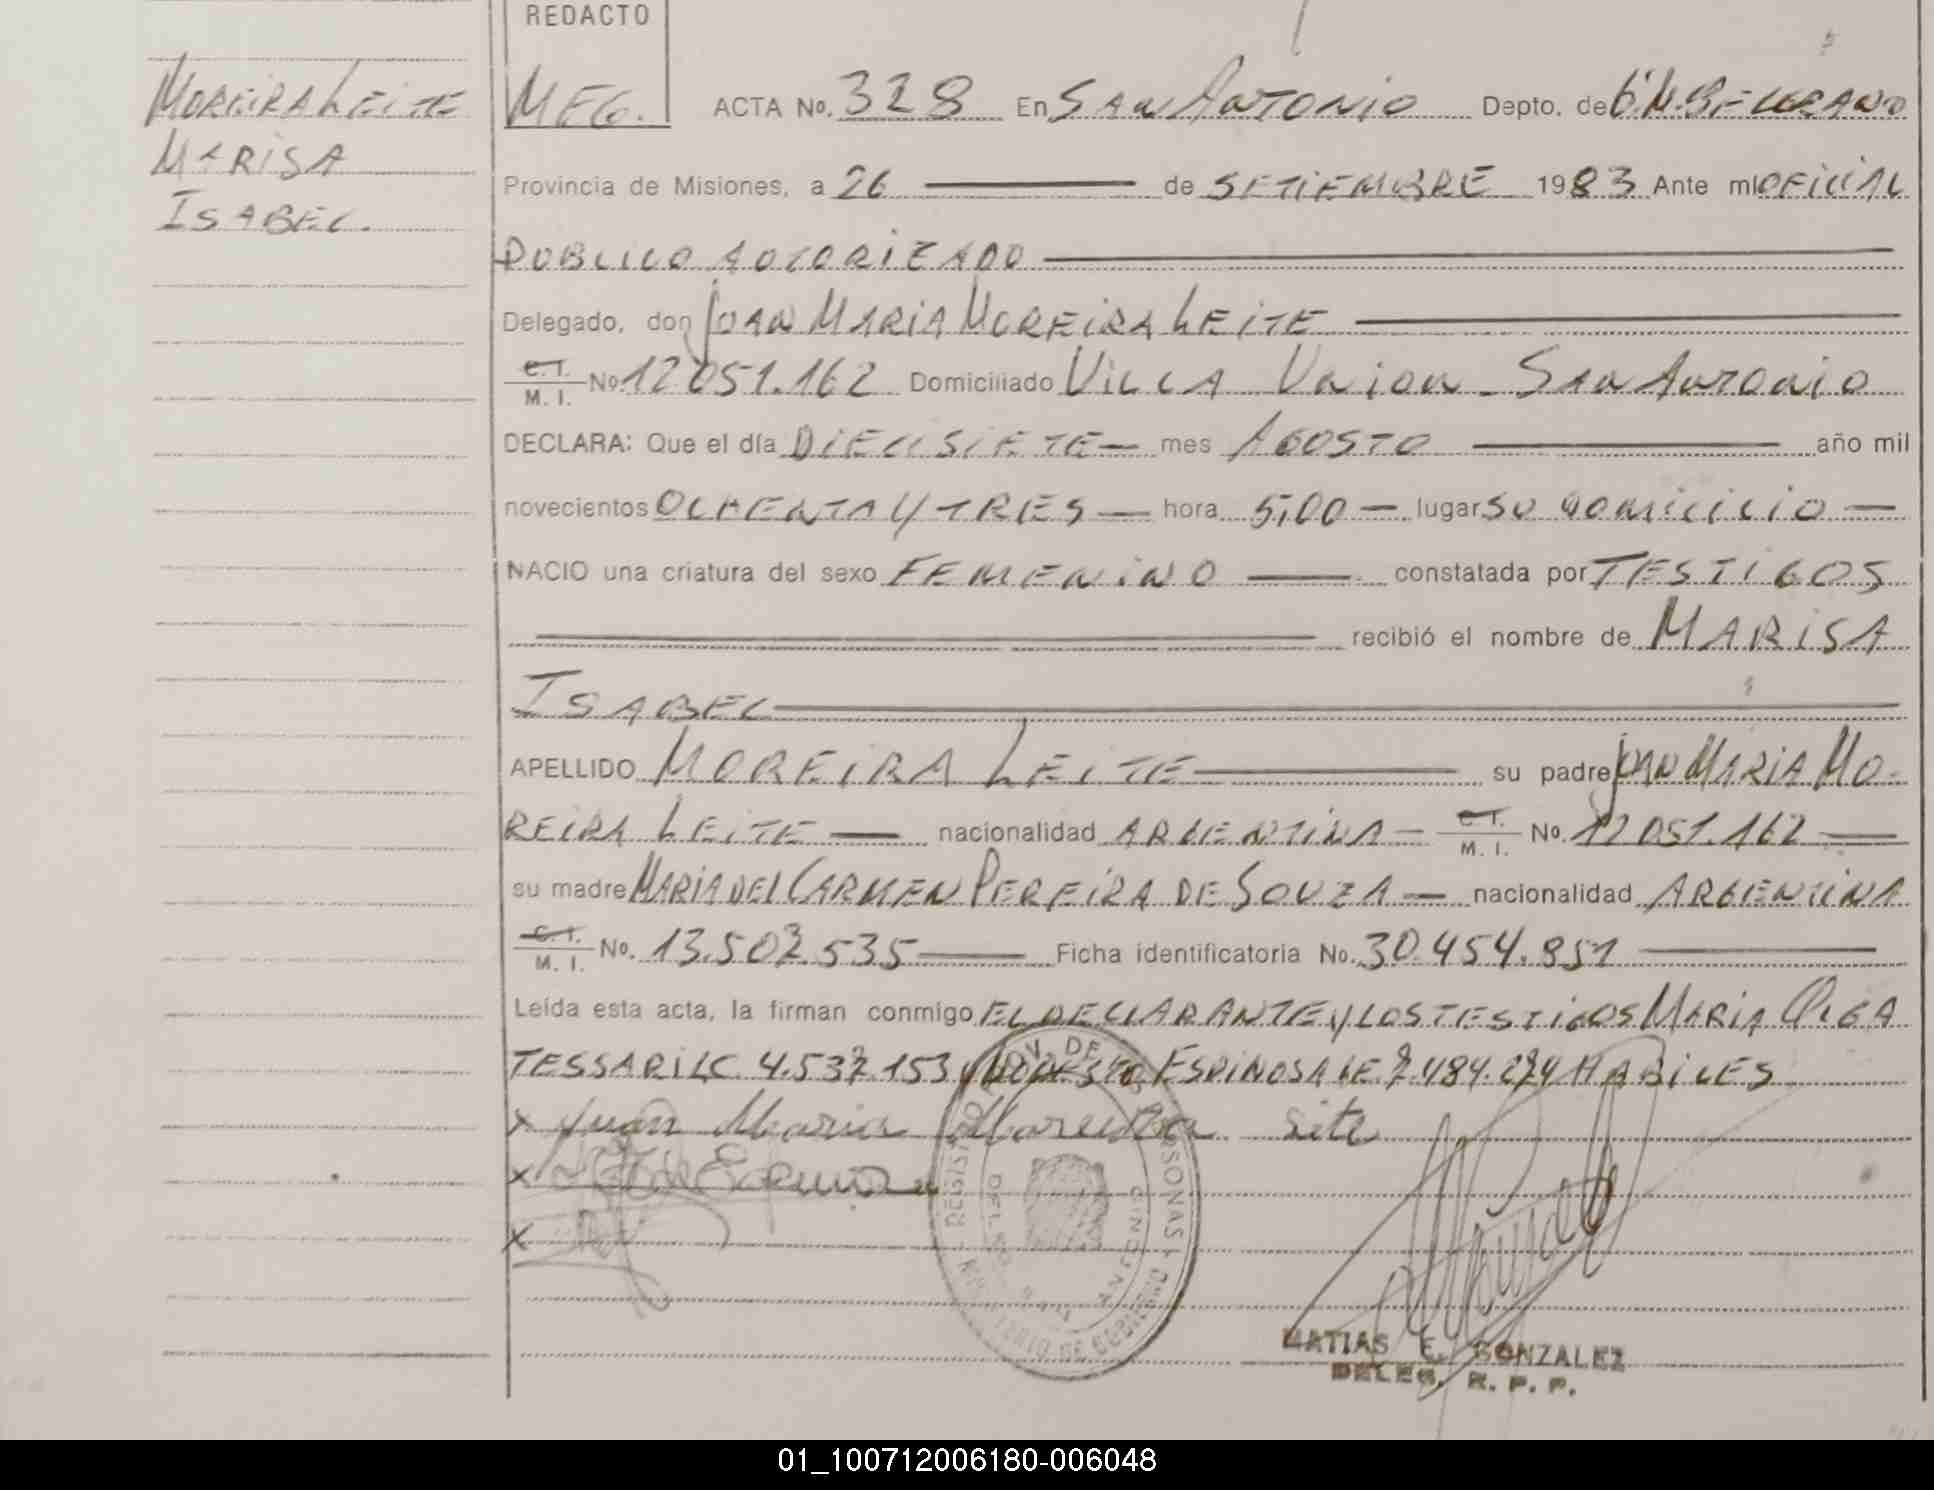 REDACTO
MOREIRA LEITE
MARISA
ISABEL.
MEG. ACTA No. 328 En SAN ANTONIO Depto. de G'M.BELGRANO
Provincia de Misiones, a 26 de SETIEMBRE 1983 Ante mi OFICIAL
PUBLICO AUTORIZADO
Delegado, don JUAN MARIA MOREIRA LEITE
C.I. M. I. No. 12.051.162 Domiciliado VILLA UNION - SAN ANTONIO
DECLARA: Que el día DIECISIETE mes AGOSTO año mil
novecientos OCHENTA Y TRES hora 5,00 lugar SU DOMICILIO
NACIO una criatura del sexo FEMENINO constatada por TESTIGOS
recibió el nombre de MARISA
ISABEL
APELLIDO MOREIRA LEITE su padre JUAN MARIA MO-
REIRA LEITE nacionalidad ARGENTINA C.I. M. I. No. 12.051.162
su madre MARIA DEL CARMEN PEREIRA DE SOUZA nacionalidad ARGENTINA
C.I. M. I. No. 13.503.535 Ficha identificatoria No. 30.454.851
Leída esta acta, la firman conmigo EL DECLARANTE Y LOS TESTIGOS MARIA OLGA
TESSARI LC. 4.537.153 Y ESPINOSA LE 7.484.274 HABILES
x Juan Maria Moreira Leite
x
x
REGISTRO PROV. DE LAS PERSONAS
MINISTERIO DE GOBIERNO
MATIAS E. GONZALEZ
DELEG. R. P. P.
01_100712006180-006048